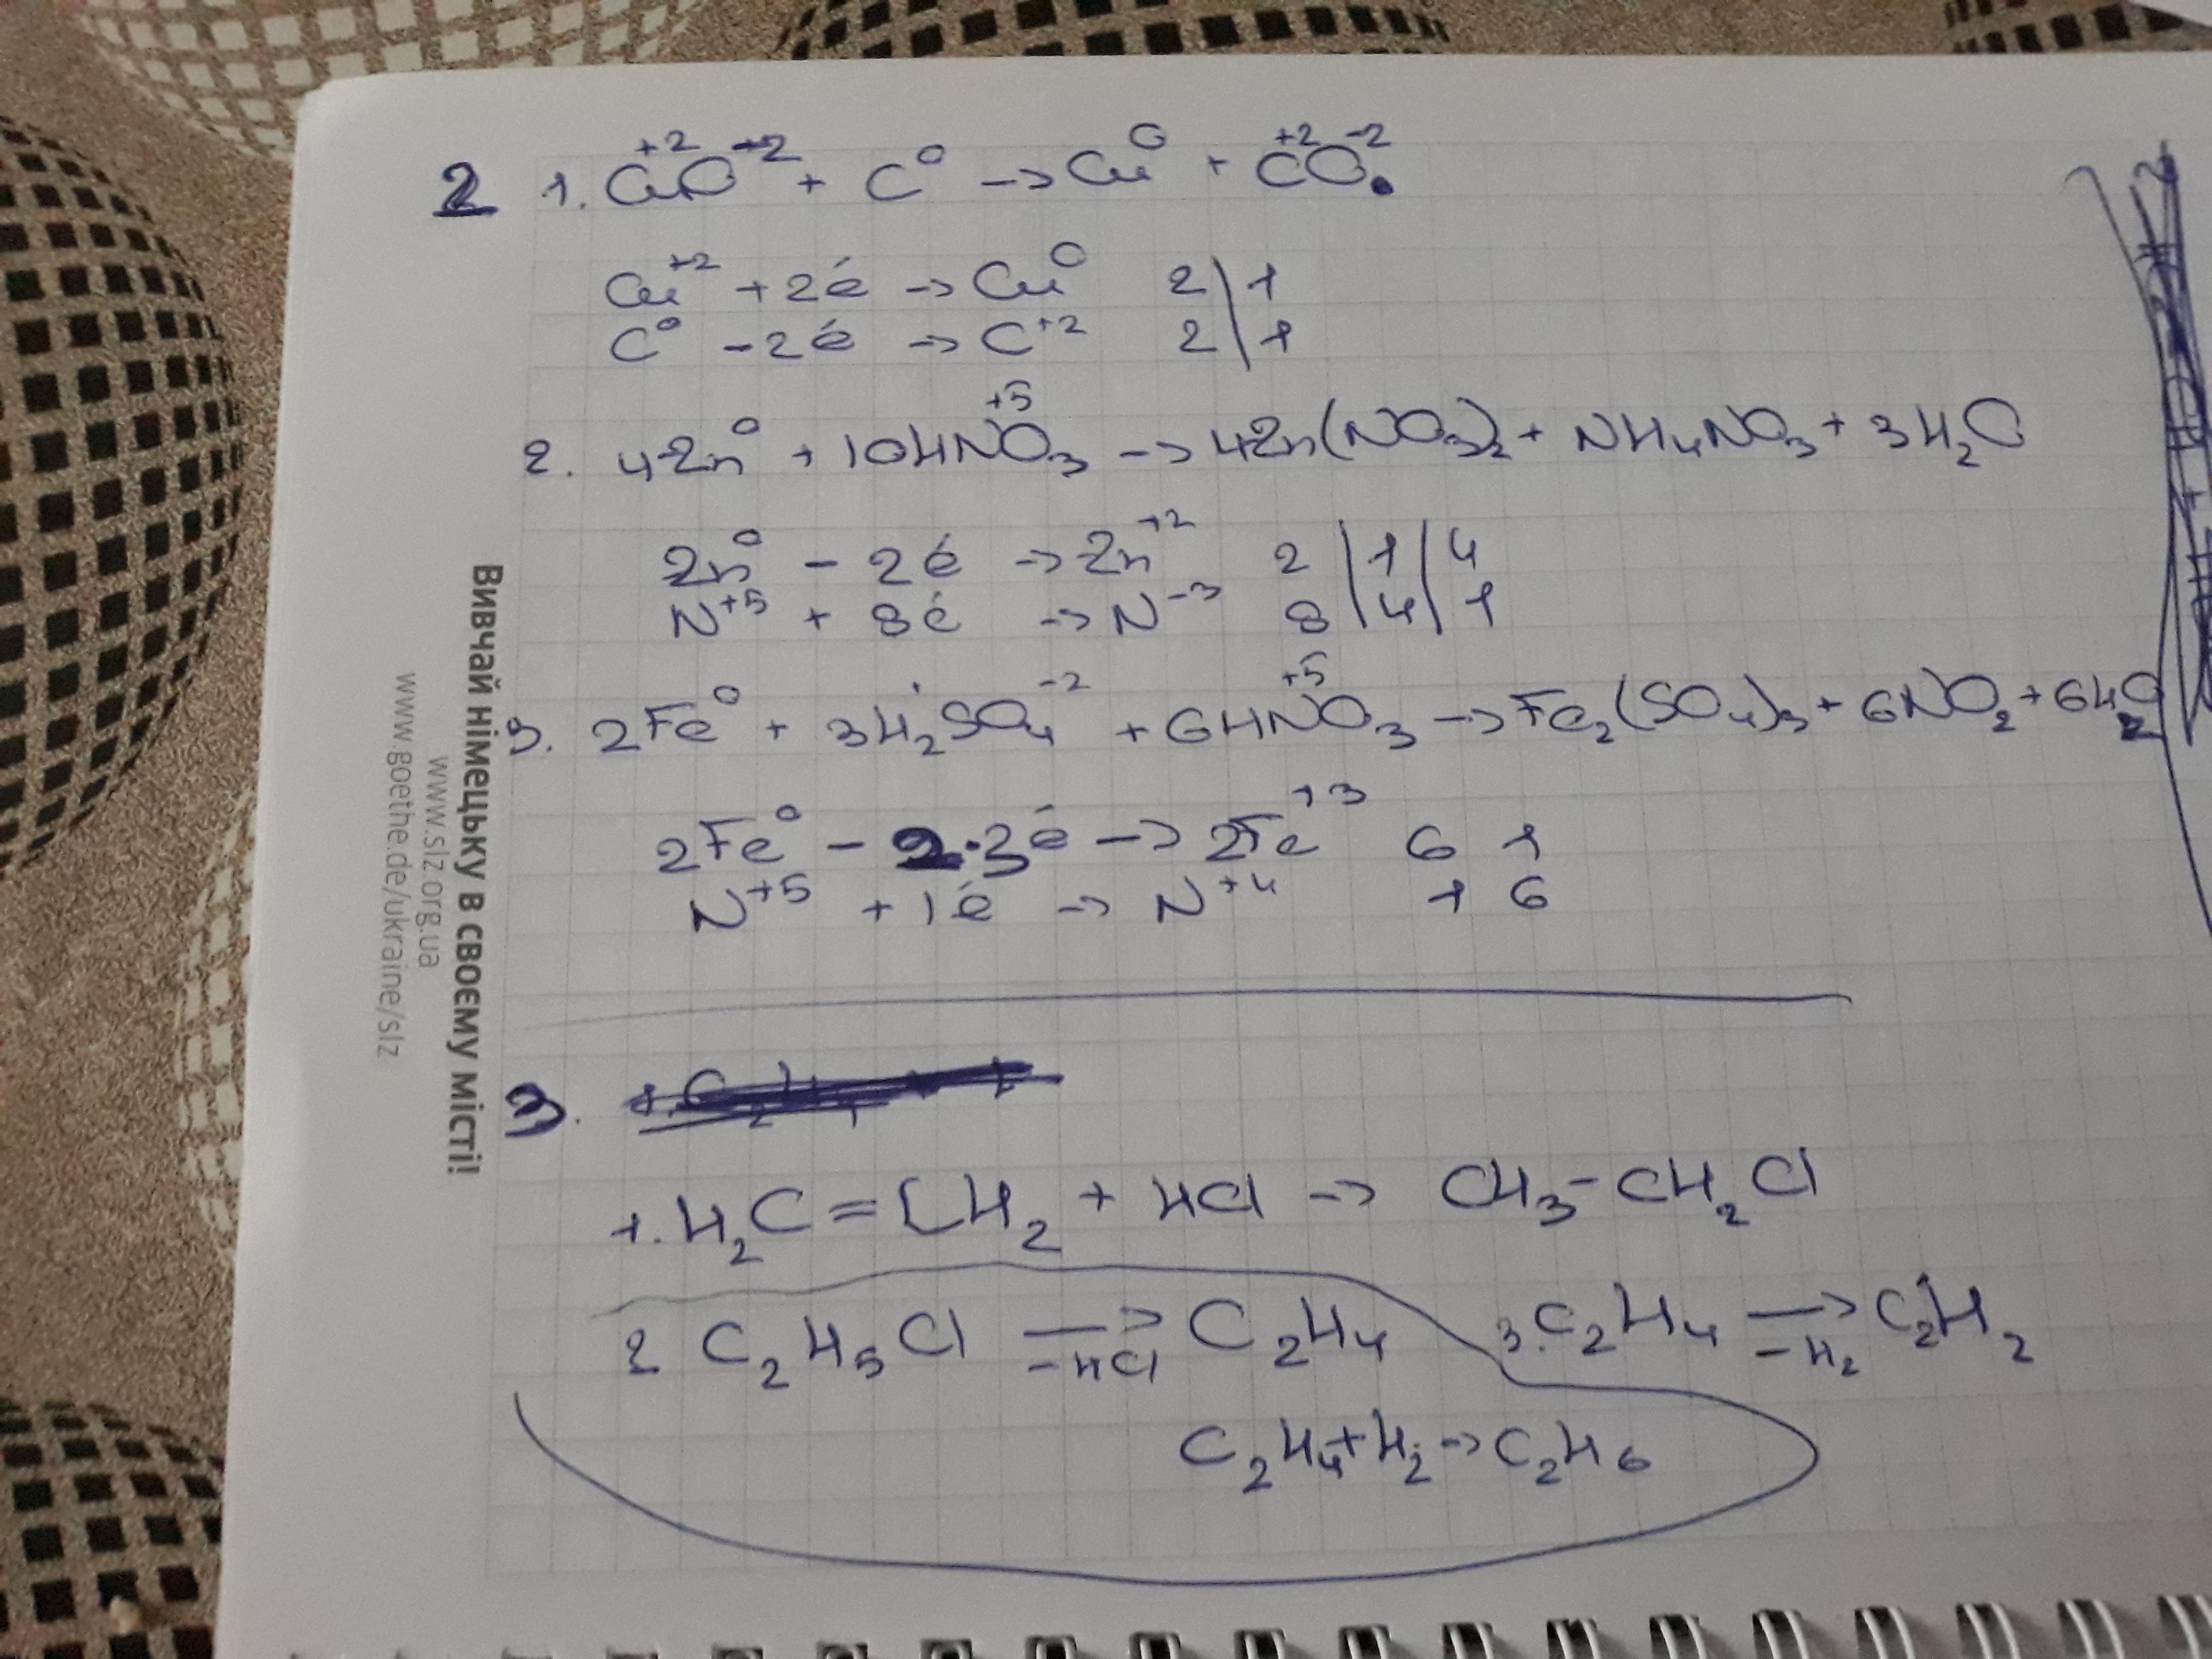 2 1. CuO + C⁰ → Cu⁰ + CO
+2 -2 +2 -2
Cu⁺² + 2é → Cu⁰ 2 | 1
C⁰ - 2é → C⁺² 2 | 1
2. 4Zn⁰ + 10HN⁺⁵O₃ → 4Zn(NO₃)₂ + NH₄NO₃ + 3H₂O
Zn⁰ - 2é → Zn⁺² 2 | 1 | 4
N⁺⁵ + 8é → N⁻³ 8 | 4 | 1
3. 2Fe⁰ + 3H₂SO₄⁻² + 6HN⁺⁵O₃ → Fe₂(SO₄)₃ + 6NO₂ + 6H₂O
2Fe⁰ - 2·3é → 2Fe⁺³ 6 1
N⁺⁵ + 1é → N⁺⁴ 1 6
3.
1. H₂C = CH₂ + HCl → CH₃-CH₂Cl
2 C₂H₅Cl → C₂H₄ 3. C₂H₄ → C₂H₂
-HCl -H₂
C₂H₄ + H₂ → C₂H₆
Вивчай німецьку в своєму місті!
www.slz.org.ua
www.goethe.de/ukraine/slz